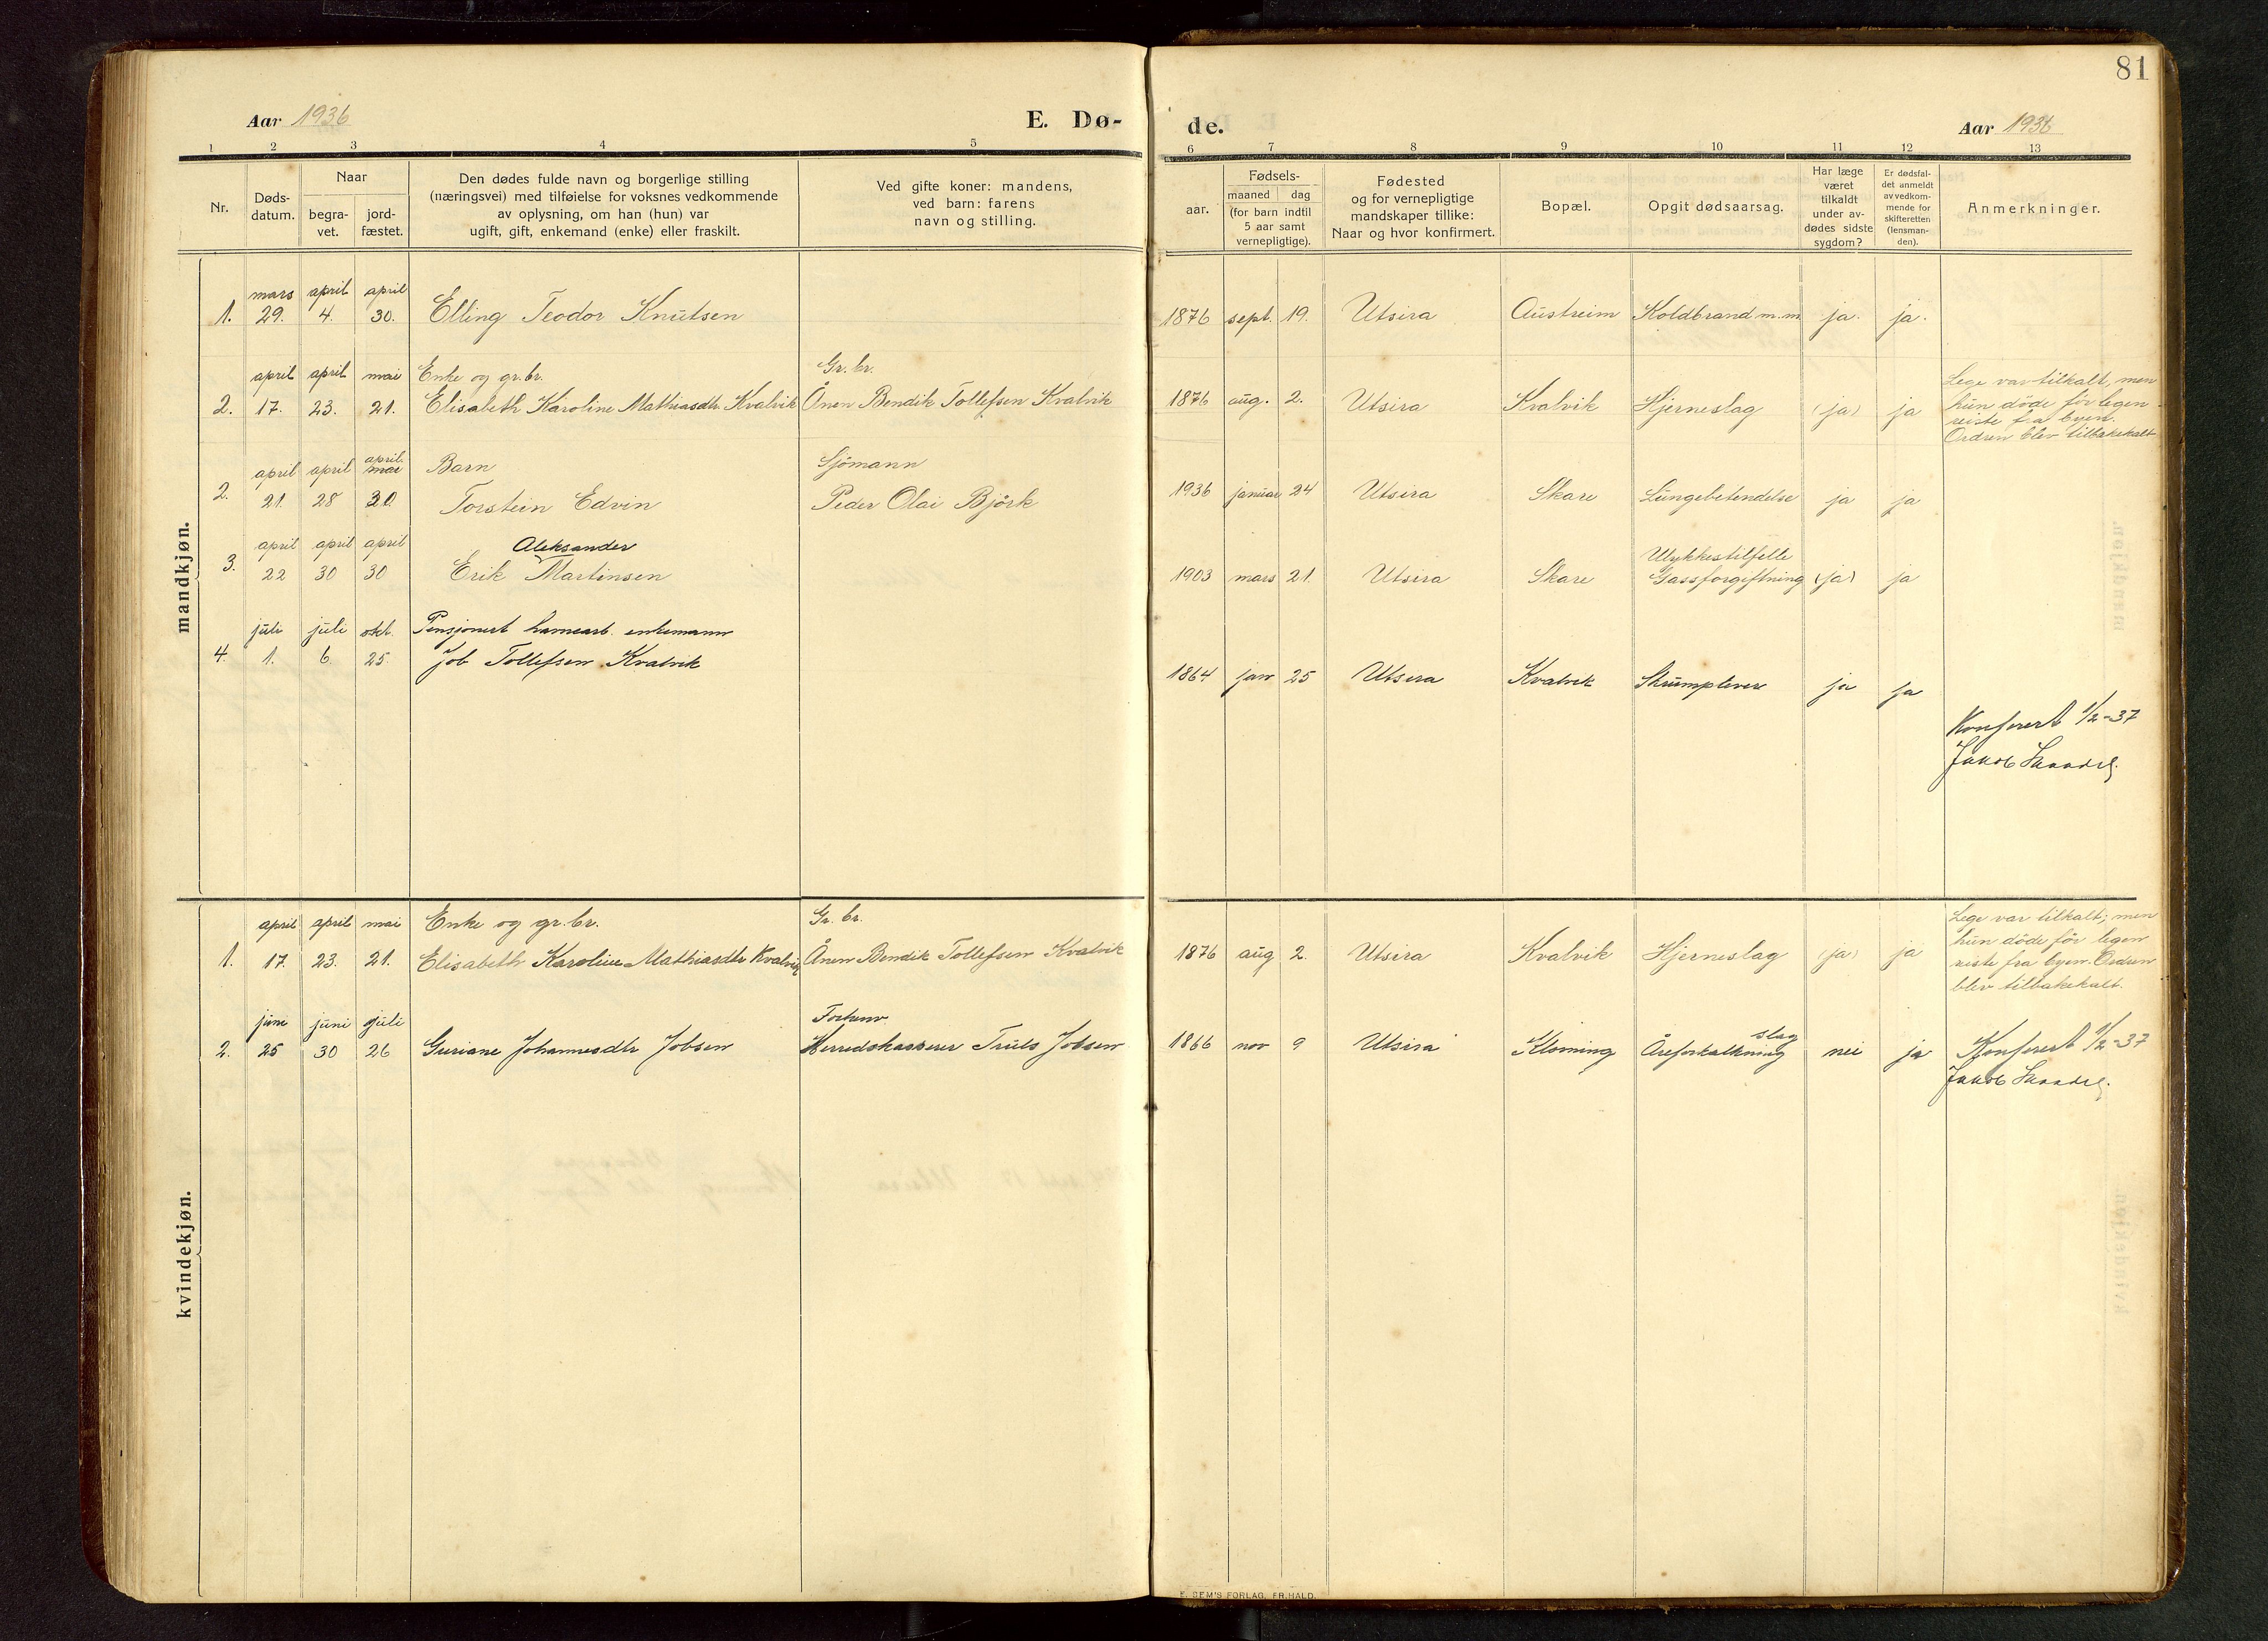 81
Aar 1936
E. Dø-
de.
Aar 1936
1 2 3 4 5 6 7 8 9 10 11 12 13
Nr.
Døds-
datum.
Naar
begra-
vet.
jord-
fæstet.
Den dødes fulde navn og borgerlige stilling
(næringsvei) med tilføielse for voksnes vedkommende
av oplysning, om han (hun) var
ugift, gift, enkemand (enke) eller fraskilt.
Ved gifte koner: mandens,
ved barn: farens
navn og stilling.
aar.
Fødsels-
maaned dag
(for barn indtil
5 aar samt
vernepligtige).
Fødested
og for vernepligtige
mandskaper tillike:
Naar og hvor konfirmert.
Bopæl.
Opgit dødsaarsag.
Har læge
været
tilkaldt
under av-
dødes sidste
sygdom?
Er dødsfal-
det anmeldt
av vedkom-
mende for
skifteretten
(lensman-
den).
Anmerkninger.
mandkjøn.
mars april april
1. 29. 4. 30. Elling Teodor Knutsen 1876 sept. 19. Utsira Austreim Koldbrand m.m. ja. ja.
april april mai Enke og gr.br. Gr. br.
2. 17. 23. 21. Elisabeth Karoline Mathiasdtr Kvalvik Ånen Bendik Tollefsen Kvalvik 1876 aug. 2. Utsira Kvalvik Hjerneslag (ja) ja
Lege var tilkalt, men
hun döde för legen
reiste fra byen.
Ordren blev tilbakekalt
april.
april april mai Barn Sjömann
2. 21. 28 30. Torstein Edvin Peder Olai Björk 1936 januar 24 Utsira Skare Lungebetendelse ja ja
april april april Aleksander Ulykkestilfelle
3. 22 30 30 Erik Martinsen 1903 mars 21. Utsira Skare Gassforgiftning (ja) ja
juli juli okt. Pensjonert havnearb. enkemann
4. 1. 6. 25. Job Tollefsen Kvalvik 1864 jan 25 Utsira Kvalvik Skrumplever ja ja
Konferert 1/2-37
Jakob
kvindekjøn.
april april mai Enke og gr.br. Gr. br.
1. 17. 23. 21. Elisabeth Karoline Mathiasdtr Kvalvik Ånen Bendik Tollefsen Kvalvik 1876 aug 2. Utsira Kvalvik Hjerneslag (ja) ja
Lege var tilkalt; men
hun döde för legen
reiste fra byen. Ordren
blev tilbakekalt.
juni juni juli Forhenv. slag
2. 25 30 26 Guriane Johannesdtr Jobsen Herredskasserer Truls Jobsen 1866 nov 9 Utsira Klovning Åreforkalkning nei ja
Konferert 1/2-37
Jakob
E. SEM'S FORLAG, FR.HALD.